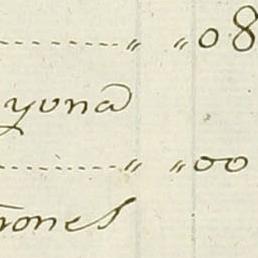 ---------- „ „ 08
yona
---------- „ „ 00
rones